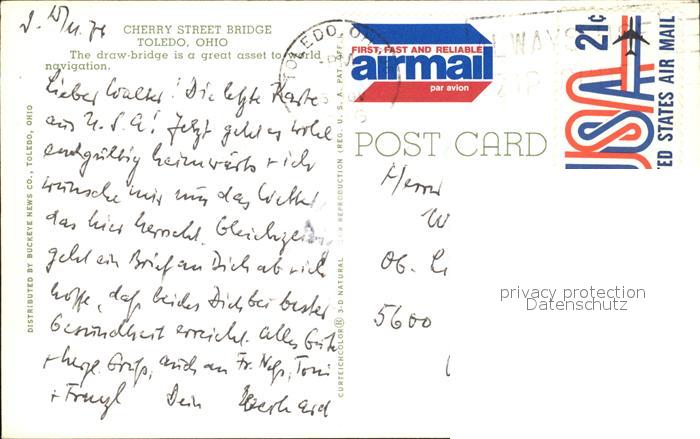 CHERRY STREET BRIDGE
TOLEDO, OHIO
The draw-bridge is a great asset to world
navigation.
Lieber Walter! Die letzte Karte
aus U.S.A! Jetzt geht es wohl
endgültig heimwärts + ich
wünsche mir nur das Wetter
das hier herrscht. Gleichzeitig
geht ein Brief an Dich ab + ich
hoffe, daß beides Dich bei bester
Gesundheit erreicht. Alles Gute
+ herzl. Grüße, auch an Fr. Toni
+ Franzl Dein Eberhard
DISTRIBUTED BY BUCKEYE NEWS CO., TOLEDO, OHIO
CURTEICHCOLOR® 3-D NATURAL COLOR REPRODUCTION (REG. U.S.A. PAT. OFF.)
TOLEDO, OH
FIRST, FAST AND RELIABLE
airmail
par avion
ALWAYS USE
ZIP
21c
USA
UNITED STATES AIR MAIL
POST CARD
Herrn
W
Ob.
5600
privacy protection
Datenschutz